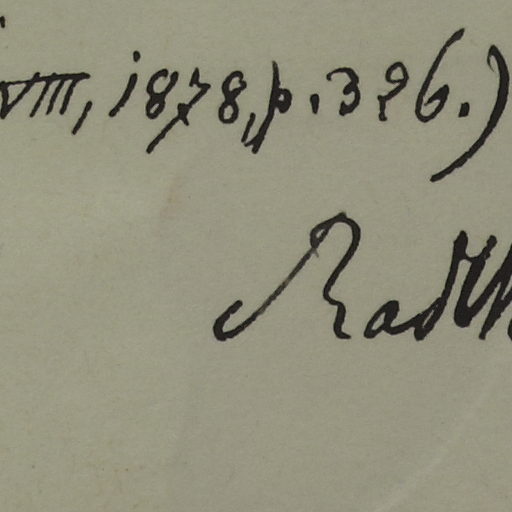 VIII, 1878, p. 326.)
Radlk